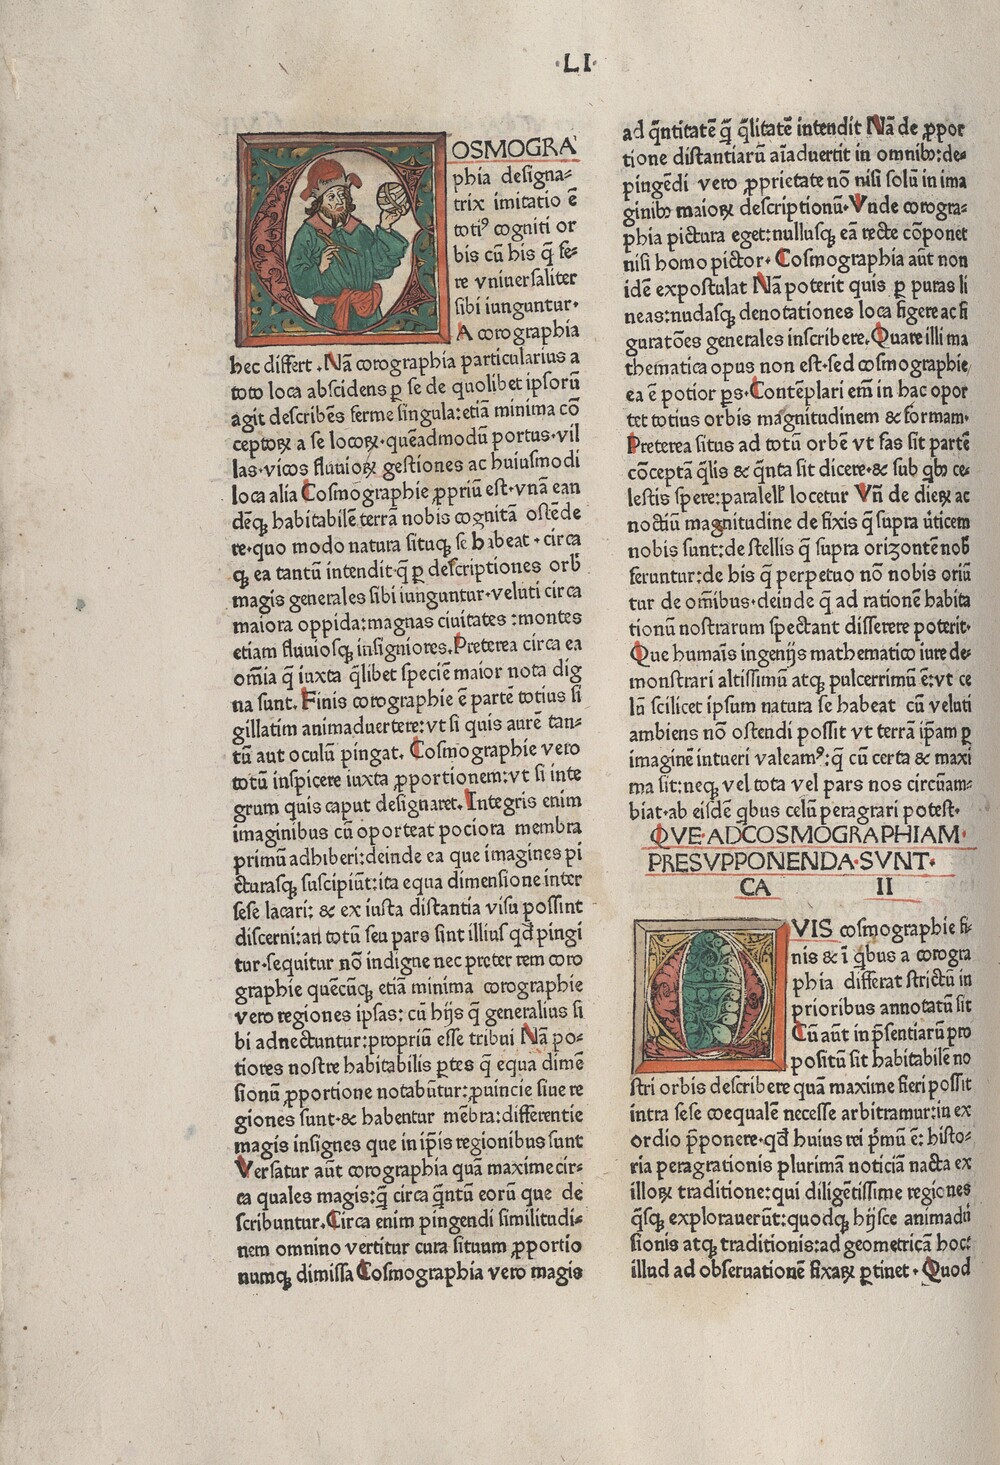 ·LI·
COSMOGRA
phia designa⸗
trix imitatio ē
toti⁹ cogniti or
bis cū his q̄ fe⸗
re vniuersaliter
sibi iunguntur·
A corographia
hec differt. Nā corographia particularius a
toto loca abscidens ꝑ se de quolibet ipsorū
agit describēs ferme singula: etiā minima cō
ceptoꝝ a se locoꝝ· quēadmodū portus· vil
las· vicos fluuioꝝ gestiones ac huiusmodi
loca alia Cosmographie ꝓpriū est· vnā ean
dēqꝫ habitabilē terrā nobis cognitā ostēde
re· quo modo natura situqꝫ se habeat· circa
qꝫ ea tantū intendit· q̄ ꝑ descriptiones orb̄
magis generales sibi iunguntur· veluti circa
maiora oppida: magnas ciuitates: montes
etiam fluuiosqꝫ insigniores. Preterea circa ea
om̄ia q̄ iuxta q̄libet speciē maior nota dig
na sunt. Finis corographie ē partē totius si
gillatim animaduertere: vt si quis aurē tan⸗
tū aut oculū pingat. Cosmographie vero
totū inspicere iuxta ꝓportionem: vt si inte
grum quis caput designaret. Integris enim
imaginibus cū oporteat pociora membra
primū adhiberi: deinde ea que imagines pi
cturasqꝫ suscipiūt: ita equa dimensione inter
sese lacari: & ex iusta distantia visu possint
discerni: an totū seu pars sint illius qd̄ pingi
tur· sequitur nō indigne nec preter rem coro
graphie quēcūqꝫ etiā minima corographie
vero regiones ipsas: cū hijs q̄ generalius si
bi adnectuntur: propriū esse tribui Nā po⸗
tiores nostre habitabilis ꝑtes q̄ equa dimē
sionū ꝓportione notabūtur: ꝓuincie siue re
giones sunt· & habentur mēbra: differentie
magis insignes que in ip̄is regionibus sunt
Versatur aūt corographia quā maxime cir⸗
ca quales magis: q̄ circa q̄ntū eorū que de
scribuntur. Circa enim pingendi similitudi⸗
nem omnino vertitur cura situum ꝓportio
numqꝫ dimissa Cosmographia vero magis
ad q̄ntitatē q̄ q̄litatē intendit Nā de ꝓpor
tione distantiarū aīaduertit in omnibꝫ: de⸗
pingēdi vero ꝓprietate nō nisi solū in ima
ginibꝫ maioꝝ descriptionū· Vnde corogra⸗
phia pictura eget: nullusqꝫ eā recte cōponet
nisi homo pictor· Cosmographia aūt non
idē expostulat Nā poterit quis ꝑ puras li
neas: nudasqꝫ denotationes loca figere ac fi
guratōes generales inscribere. Quare illi ma
thematica opus non est· sed cosmographie
ea ē potior ꝑs· Contēplari em̄ in hac opor
tet totius orbis magnitudinem & formam·
Preterea situs ad totū orbē vt fas sit partē
cōceptā q̄lis & q̄nta sit dicere· & sub qbꝫ ce⸗
lestis spere: paralell̄ locetur Vn̄ de dieꝝ ac
noctiū magnitudine de fixis q̄ supra v̄ticem
nobis sunt: de stellis q̄ supra orizontē nob̄
feruntur: de his q̄ perpetuo nō nobis oriū
tur de om̄ibus· deinde q̄ ad rationē habita
tionū nostrarum spectant disserere poterit·
Que humaīs ingenijs mathematico iure de⸗
monstrari altissimū atqꝫ pulcerrimū ē: vt ce
lū scilicet ipsum natura se habeat cū veluti
ambiens nō ostendi possit vt terrā ip̄am ꝑ
imaginē intueri valeam⁹: q̄ cū certa & maxi
ma sit: neqꝫ vel tota vel pars nos circūam⸗
biat· ab eisdē qbus celū peragrari potest·
QVE·ADCOSMOGRAPHIAM·
PRESVPPONENDA·SVNT·
CA II
QVIS cosmographie fi⸗
nis & ī qbus a corogra
phia differat strictū in
prioribus annotatū sit
Cū aūt in p̄sentiarū pro
positū sit habitabilē no
stri orbis describere quā maxime fieri possit
intra sese coequalē necesse arbitramur: in ex
ordio p̄ponere· qd̄ huius rei p̄mū ē: histo⸗
ria peragrationis plurimā noticiā nacta ex
illoꝝ traditione: qui diligētissime regiones
q̄sqꝫ explorauerūt: quodqꝫ hijsce animadū
sionis atqꝫ traditionis: ad geometricā hoc:
illud ad obseruationē fixaꝝ ꝑtinet· Quod